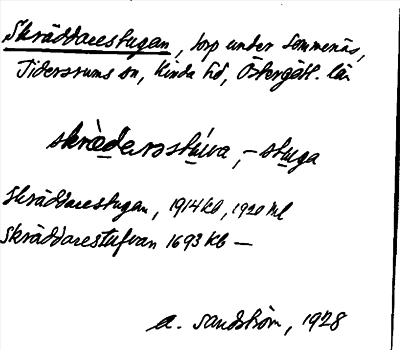 Skräddarestugan, torp under Sommenäs,
Tidersrums sn, Kinda hd, Östergötl. län
skrèdarəstúva, -stuga
Skräddarestugan, 1914 kb, 1920 ml
Skräddarestufvan 1693 Kb —
A. Sandström, 1928